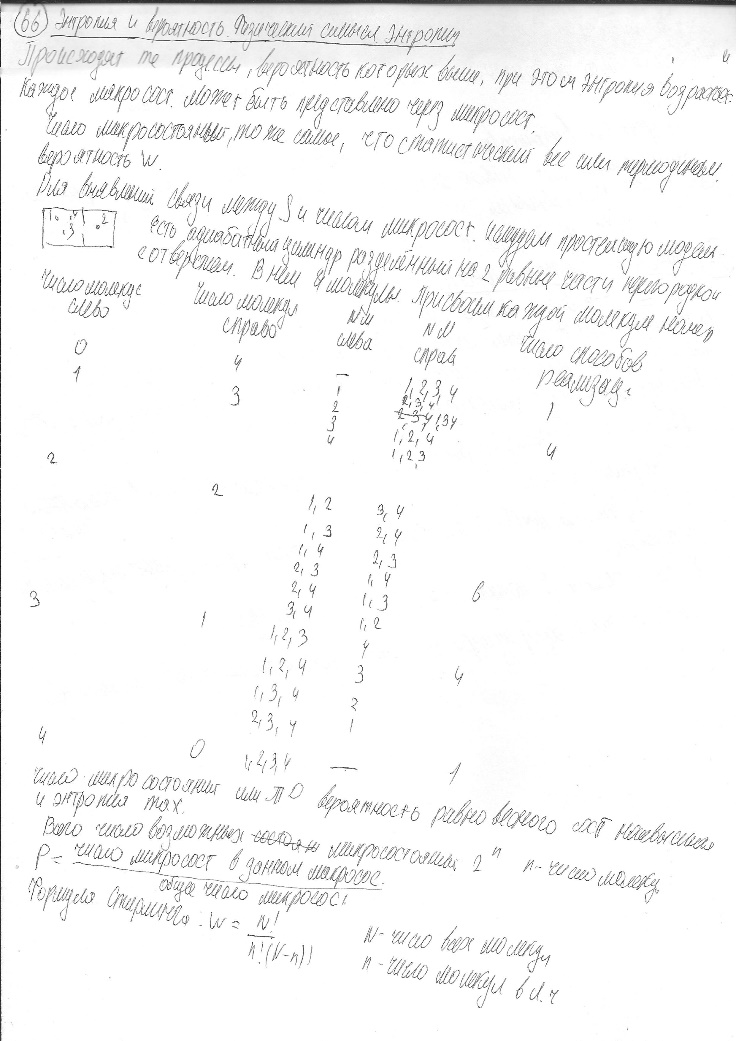 66 Энтропия и вероятность. Физический смысл энтропии
Происходят те процессы, вероятность которых выше, при этом энтропия возрастает.
Каждое макросост. может быть представлено через микросост.
Число микросостояний, то же самое, что статистический вес или термодинам.
вероятность W.
Для выявления связи между S и числом микросост. исследуем простейшую модель
Есть адиабатный цилиндр разделённый на 2 равные части перегородкой
с отверстием. В нем 4 молекулы Присвоим каждой молекуле номер
1 4 2
3
Число молекул число молекул №м №М число способов
слева справо слева справа реализац.
0 4 — 1,2,3,4 1
1 3 1 2,3,4
2 2 3 4 1,3,4
3 1,2,4 4
4 1,2,3
2 2 1,2 3,4
1,3 2,4
1,4 2,3
2,3 1,4 6
2,4 1,3
3,4 1,2
3 1 1,2,3 4
1,2,4 3 4
1,3,4 2
2,3,4 1
4 0 1,2,3,4 — 1
Число микросостояний или ТД вероятность равновесного сост наивысшая
и энтропия max.
Всего число возможных состоян микросостояниях 2ⁿ n-число молекул
P = число микросост в данном макросос.
общее число микросост
Формула Стирлинга: W = N!
n!(N-n)!
N- число всех молекул
n- число молекул в л.ч